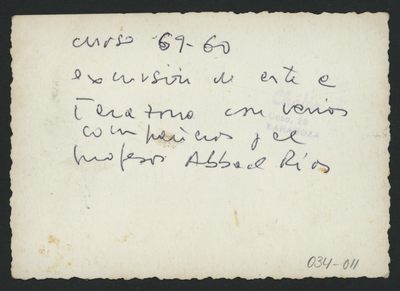 curso 69-60
excursión de arte a
Tarazona con varios
compañeros y el
profesor Abbad Ríos
ZARAGOZA
034-011